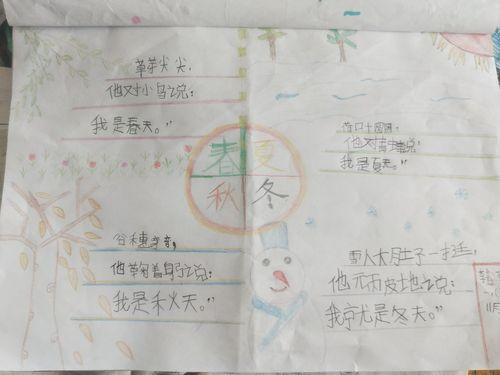 草芽尖尖，
他对小鸟说：
我是春天。”
荷叶圆圆，
他对青蛙说：
我是夏天。”
春夏
秋冬
谷穗弯弯，
他鞠着躬说：
我是秋天。”
雪人大肚子一挺，
他顽皮地说：
我就是冬天。”